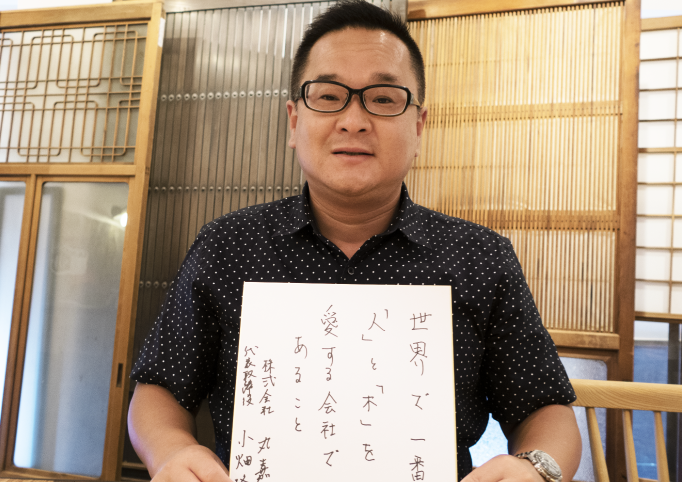 世界で一番
「人」と「木」を
愛する会社で
あること
株式会社 丸嘉
代表取締役 小畑